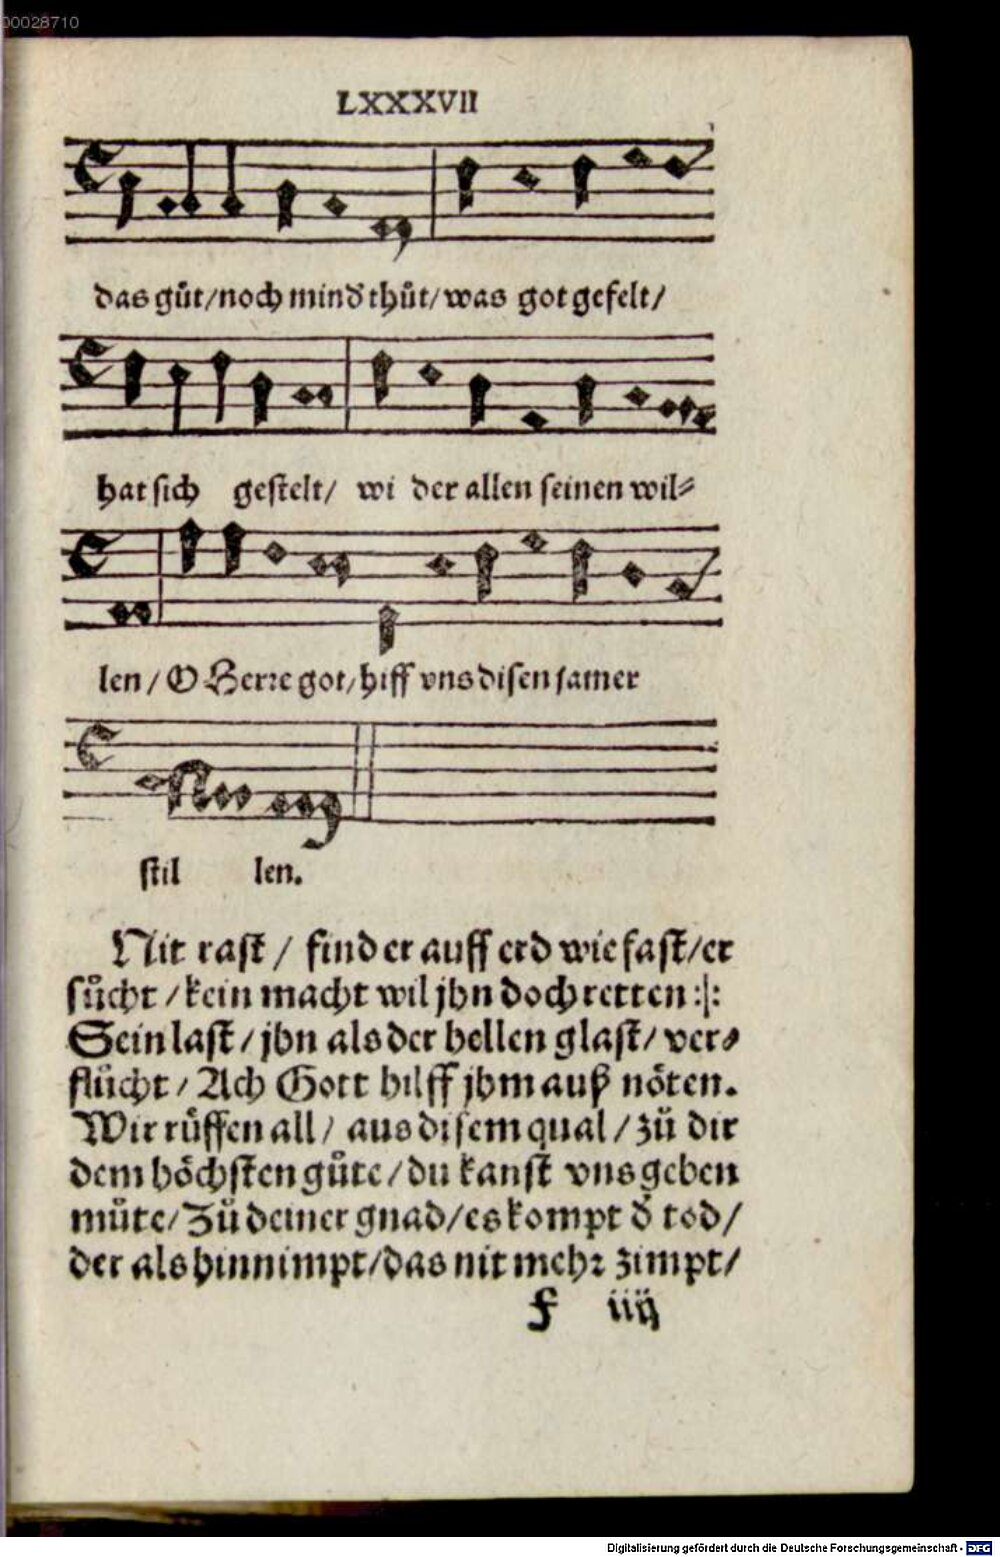 00028710
LXXXVII
das gůt/noch mind̕ thůt/was got gefelt/
hat sich gestelt/ wi der allen seinen wil⸗
len/ O Herre got/hiff vns disen jamer
stil len.
Nit rast/ find er auff erd wie fast/er
sůcht/kein macht wil jhn doch retten :|:
Sein last/jhn als der hellen glast/ver⸗
flůcht/Ach Gott hilff jhm auß nöten.
Wir růffen all/ aus disem qual/zů dir
dem höchsten gůte/du kanst vns geben
můte/Zů deiner gnad/es kompt d̕ tod/
der als hinnimpt/das nit mehr zimpt/
F iiij
Digitalisierung gefördert durch die Deutsche Forschungsgemeinschaft - DFG